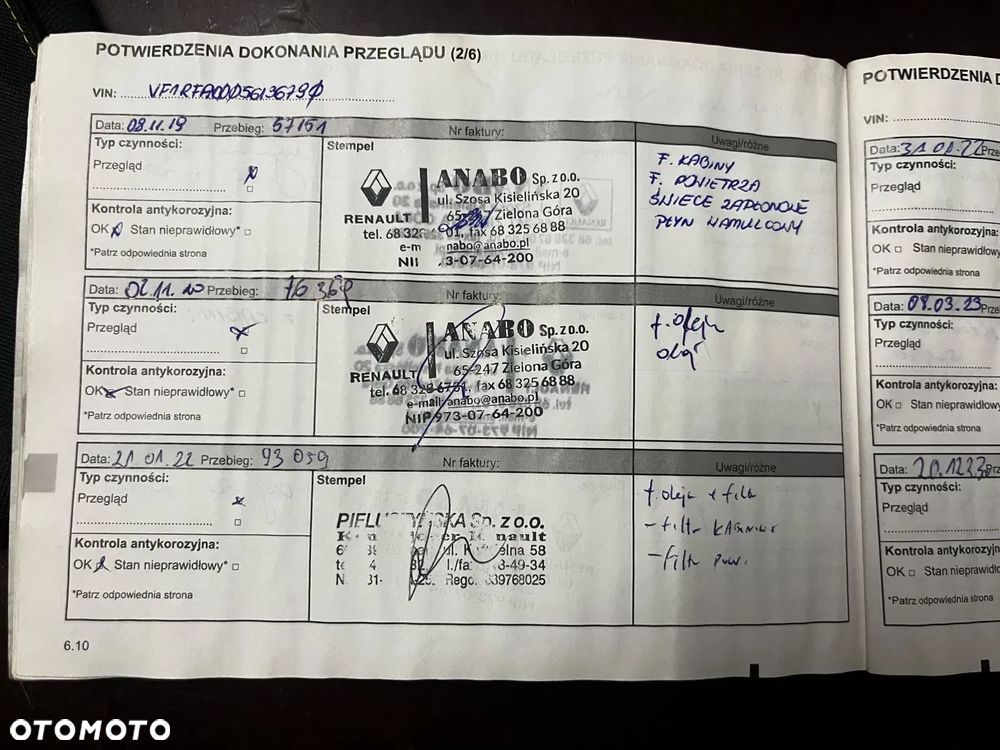 POTWIERDZENIA DOKONANIA PRZEGLĄDU (2/6)
VIN:
Data: 08.11.19 Przebieg: 57151 Nr faktury: Uwagi/różne
Typ czynności:
Przegląd
Kontrola antykorozyjna:
OK Stan nieprawidłowy*
*Patrz odpowiednia strona
Stempel
RENAULT
ANABO Sp. z o.o.
ul. Szosa Kisielińska 20
Zielona Góra
fax 68 325 68 88
nabo@anabo.pl
3-07-64-200
F. KABINY
F. POWIETRZA
ŚWIECE ZAPŁONOWE
PŁYN HAMULCOWY
Data: 02.11.20 Przebieg: Nr faktury: Uwagi/różne
Typ czynności:
Przegląd
Kontrola antykorozyjna:
OK Stan nieprawidłowy*
*Patrz odpowiednia strona
Stempel
RENAULT
ANABO Sp. z o.o.
ul. Szosa Kisielińska 20
65-247 Zielona Góra
tel. 68 328 fax 68 325 68 88
e-mail: anabo@anabo.pl
NIP 973-07-64-200
f. oleju
olej
Data: 21.01.22 Przebieg: 93 059 Nr faktury: Uwagi/różne
Typ czynności:
Przegląd
Kontrola antykorozyjna:
OK Stan nieprawidłowy*
*Patrz odpowiednia strona
Stempel
Sp. z o.o.
58
-49-34
Rego: 039768025
f. oleju
- filtr KABINOWY
- filtr pow.
6.10
POTWIERDZENIA D
VIN:
Data: 31.01.22 Prze
Typ czynności:
Przegląd
Kontrola antykorozyjn
OK Stan nieprawid
*Patrz odpowiednia strona
Data: 09.03.23 Prze
Typ czynności:
Przegląd
Kontrola antykorozyjn
OK Stan nieprawidł
*Patrz odpowiednia strona
Data: 20.12.23 Prz
Typ czynności:
Przegląd
Kontrola antykorozyj
OK Stan nieprawidło
*Patrz odpowiednia strona
OTOMOTO